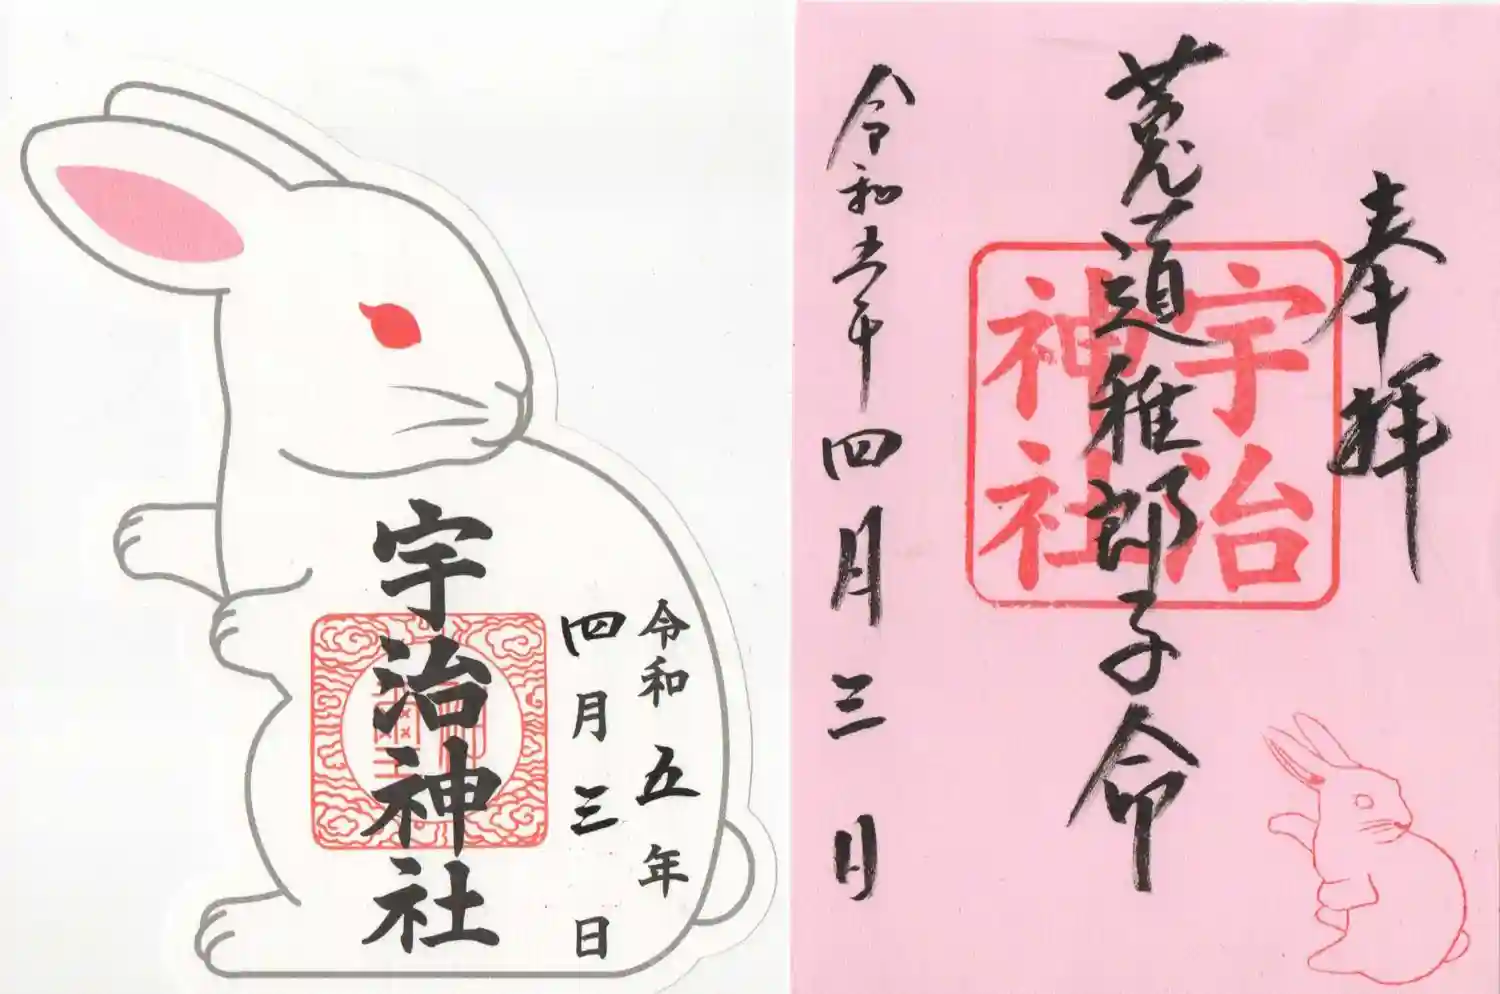 令和五年
四月三日
宇治神社
奉拝
菟道稚郎子命
宇治
神社
令和五年四月三日